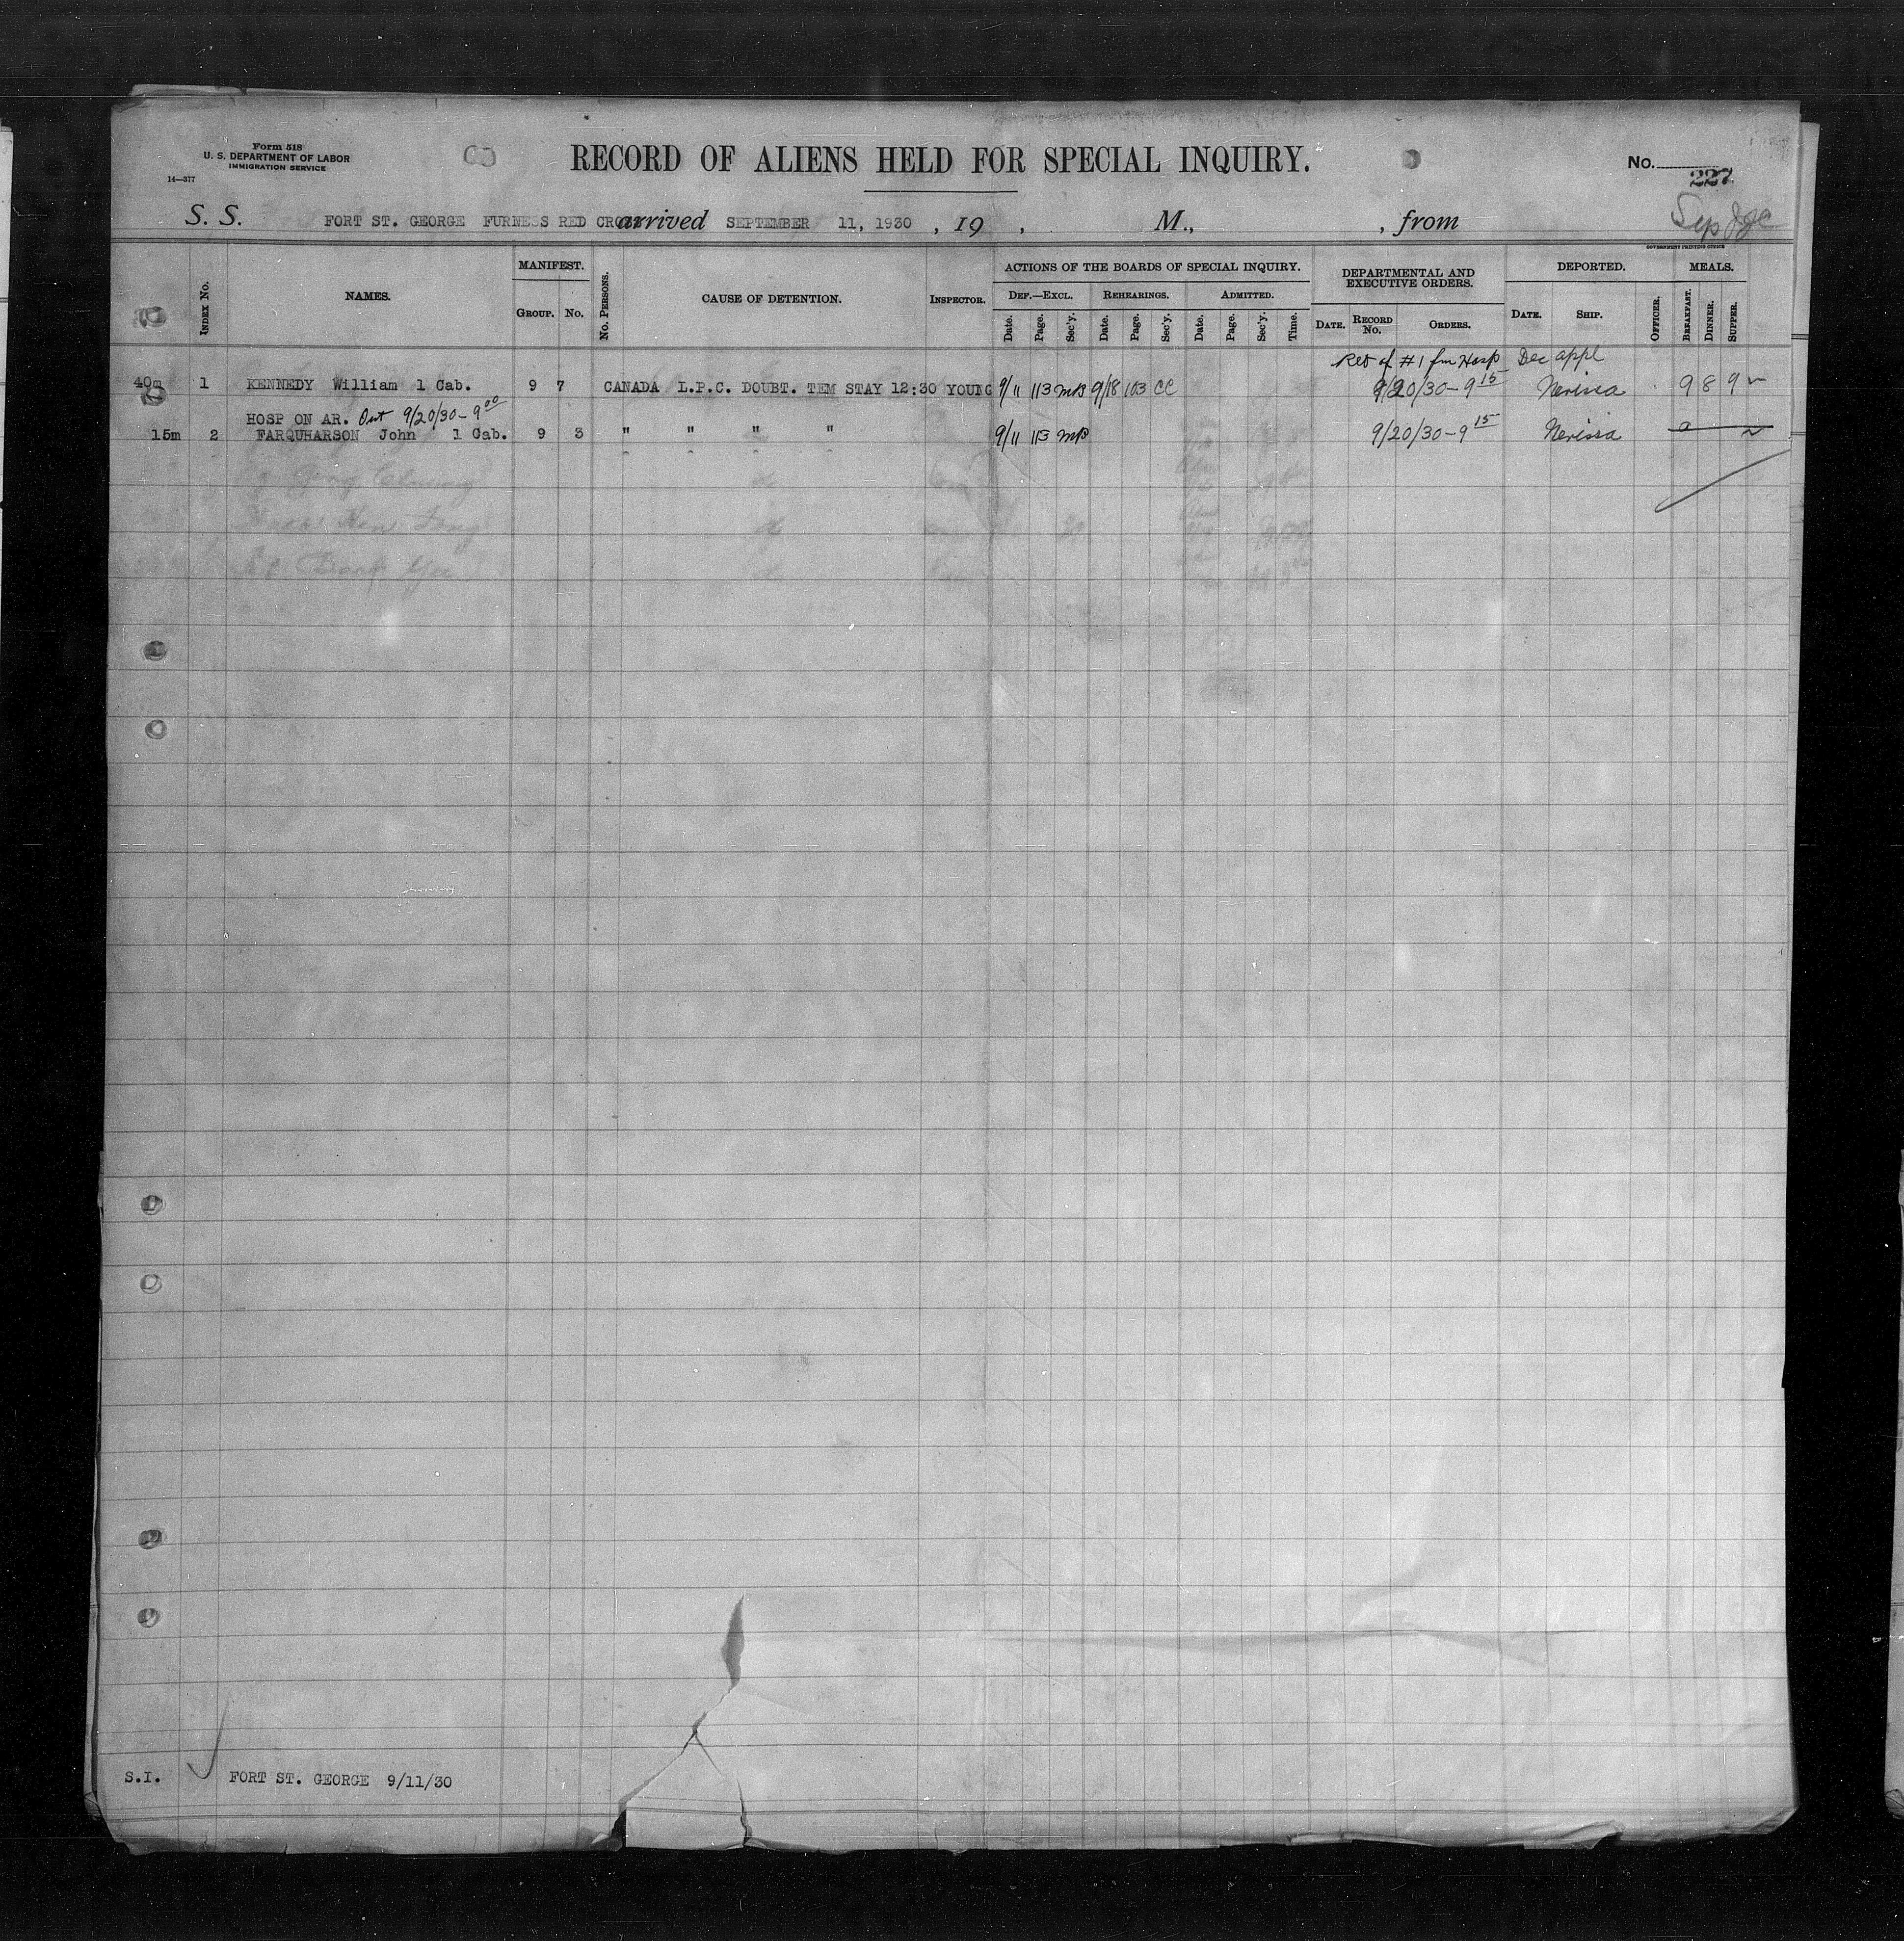 Form 518
U. S. DEPARTMENT OF LABOR
IMMIGRATION SERVICE
14—377
RECORD OF ALIENS HELD FOR SPECIAL INQUIRY.
No.
227
S. S. FORT ST. GEORGE FURNESS RED CROSS arrived SEPTEMBER 11, 1930 , 19 , M., , from
Sep
GOVERNMENT PRINTING OFFICE
INDEX No. NAMES. MANIFEST. GROUP. No. No. PERSONS. CAUSE OF DETENTION. INSPECTOR. ACTIONS OF THE BOARDS OF SPECIAL INQUIRY. DEPARTMENTAL AND EXECUTIVE ORDERS. DEPORTED. OFFICER. MEALS.
DEF.—EXCL. REHEARINGS. ADMITTED.
Date. Page. Sec'y. Date. Page. Sec'y. Date. Page. Sec'y. Time. DATE. RECORD No. ORDERS. DATE. SHIP. BREAKFAST. DINNER. SUPPER.
Red of #1 fm Hosp Dec appl
40m 1 KENNEDY William 1 Cab. 9 7 CANADA L.P.C. DOUBT. TEM STAY 12:30 YOUNG 9/11 113 MB 9/18 103 CC 9/20/30-9 15 Nerissa 9 8 9
HOSP ON AR. Out 9/20/30-9 00
15m 2 FARQUHARSON John 1 Cab. 9 3 " " " " 9/11 113 MB 9/20/30-9 15 Nerissa
S.I. FORT ST. GEORGE 9/11/30